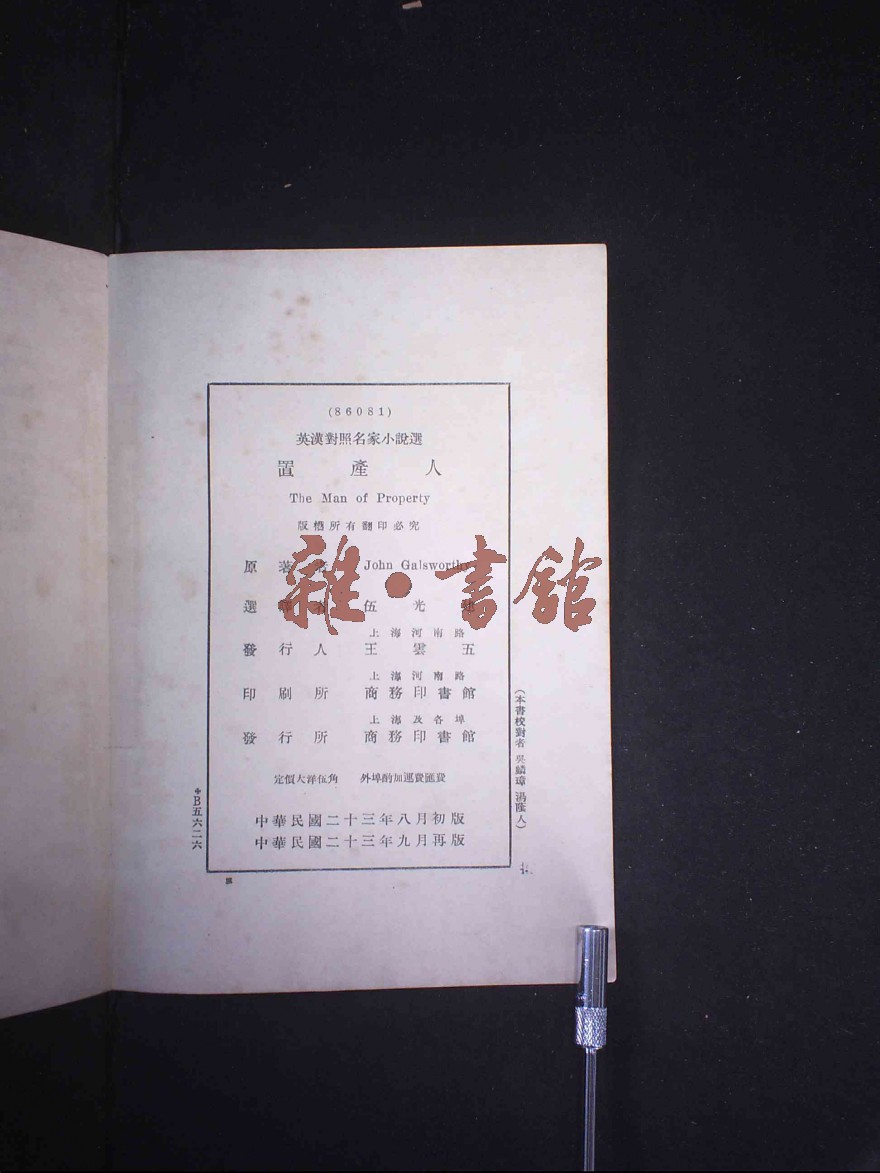 (86081)
英漢對照名家小說選
置產人
The Man of Property
版權所有翻印必究
原著者 John Galsworthy
選譯者 伍光建
上海河南路
發行人 王雲五
上海河南路
印刷所 商務印書館
上海及各埠
發行所 商務印書館
定價大洋伍角 外埠酌加運費匯費
中華民國二十三年八月初版
中華民國二十三年九月再版
(本書校對者 吳麟瑋 湯蔭人)
*B五六二六
雜·書館